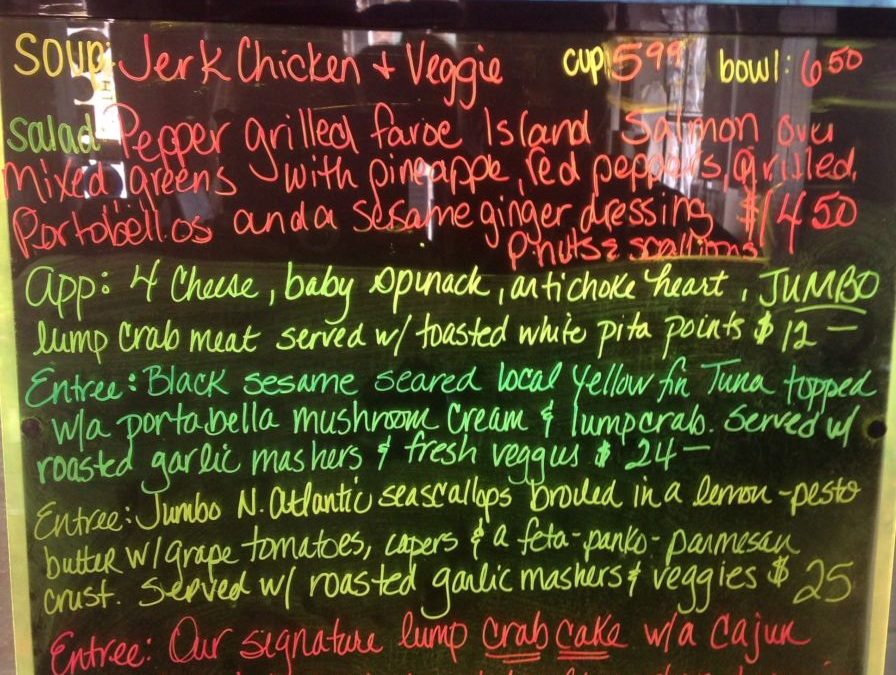 Soup: Jerk Chicken + Veggie cup 5.99 bowl: 6.50
salad: Pepper grilled faroe Island Salmon over
Mixed greens with pineapple, red peppers, grilled
Portobellos and a sesame ginger dressing $14.50
Pnuts & scallions
App: 4 Cheese, baby spinach, artichoke heart, JUMBO
lump crab meat served w/ toasted white pita points $12 —
Entree: Black sesame seared local yellow fin Tuna topped
w/a portabella mushroom cream & lumpcrab. served w/
roasted garlic mashers & fresh veggies $24 —
Entree: Jumbo N. Atlantic seascallops broiled in a lemon-pesto
butter w/ grape tomatoes, capers & a feta-panko-parmesan
crust. served w/ roasted garlic mashers & veggies $25
Entree: Our signature lump crab cake w/a Cajun